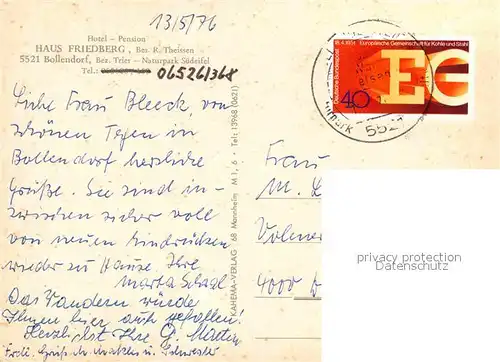 13/5/76
Hotel - Pension
HAUS FRIEDBERG, Bes. R. Theissen
5521 Bollendorf, Bez. Trier - Naturpark Südeifel
Tel.: 06526/368
Liebe Frau Bleeck, von
schönen Tagen in
Bollendorf herzliche
Grüße. Sie sind in-
zwischen sicher voll
von neuen Eindrücken
wieder zu Hause. Ihre
Marta Schaal
Das Wandern würde
Ihnen hier auch gefallen!
Herzlichst Ihre G.
KAHEMA-VERLAG 68 Mannheim M 1, 6 · Tel: 13968 (0621)
18.4.1951 Europäische Gemeinschaft für Kohle und Stahl
Deutsche Bundespost
EG
40
Frau
M.
4000
privacy protection
Datenschutz